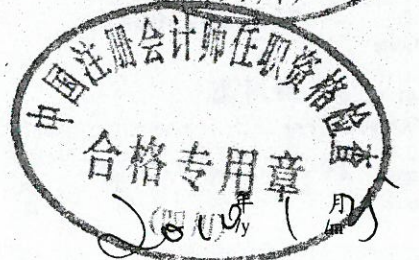 中国注册会计师任职资格检查
合格专用章
(四川)
年 月
/y /m